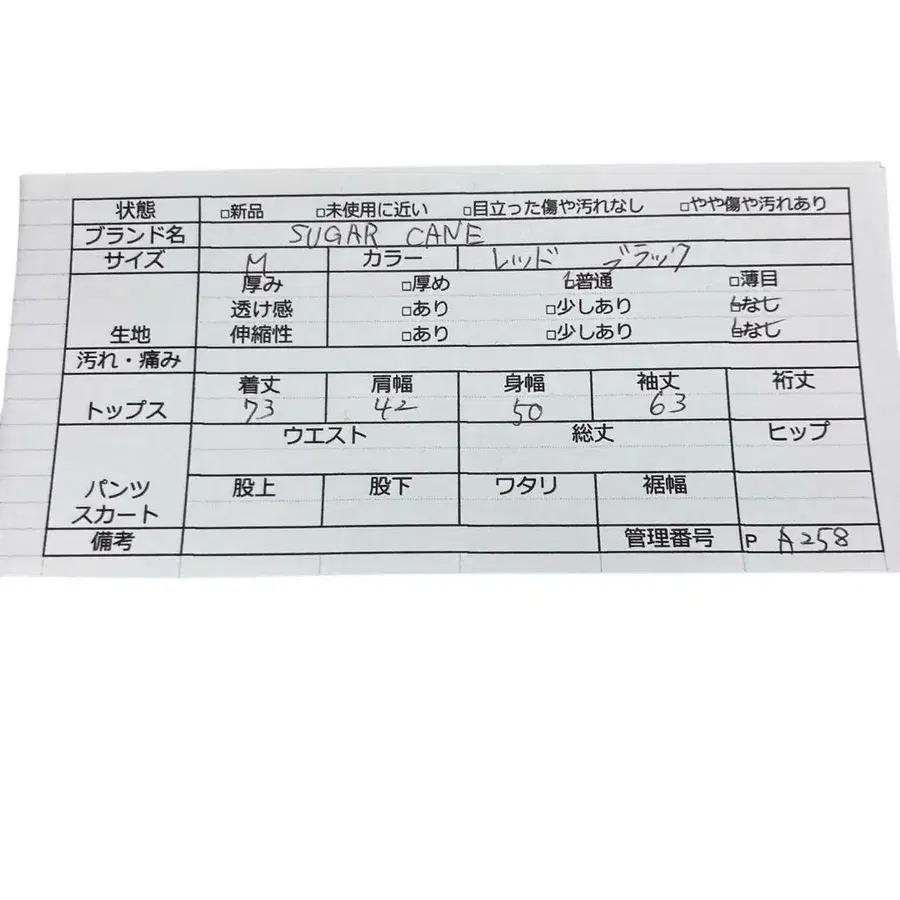 状態 □新品 □未使用に近い □目立った傷や汚れなし □やや傷や汚れあり
ブランド名 SUGAR CANE
サイズ M カラー レッド ブラック
厚み □厚め □普通 □薄目
透け感 □あり □少しあり □なし
生地 伸縮性 □あり □少しあり □なし
汚れ・痛み
着丈 肩幅 身幅 袖丈 裄丈
トップス 73 42 50 63
ウエスト 総丈 ヒップ
パンツ 股上 股下 ワタリ 裾幅
スカート
備考 管理番号 P A258